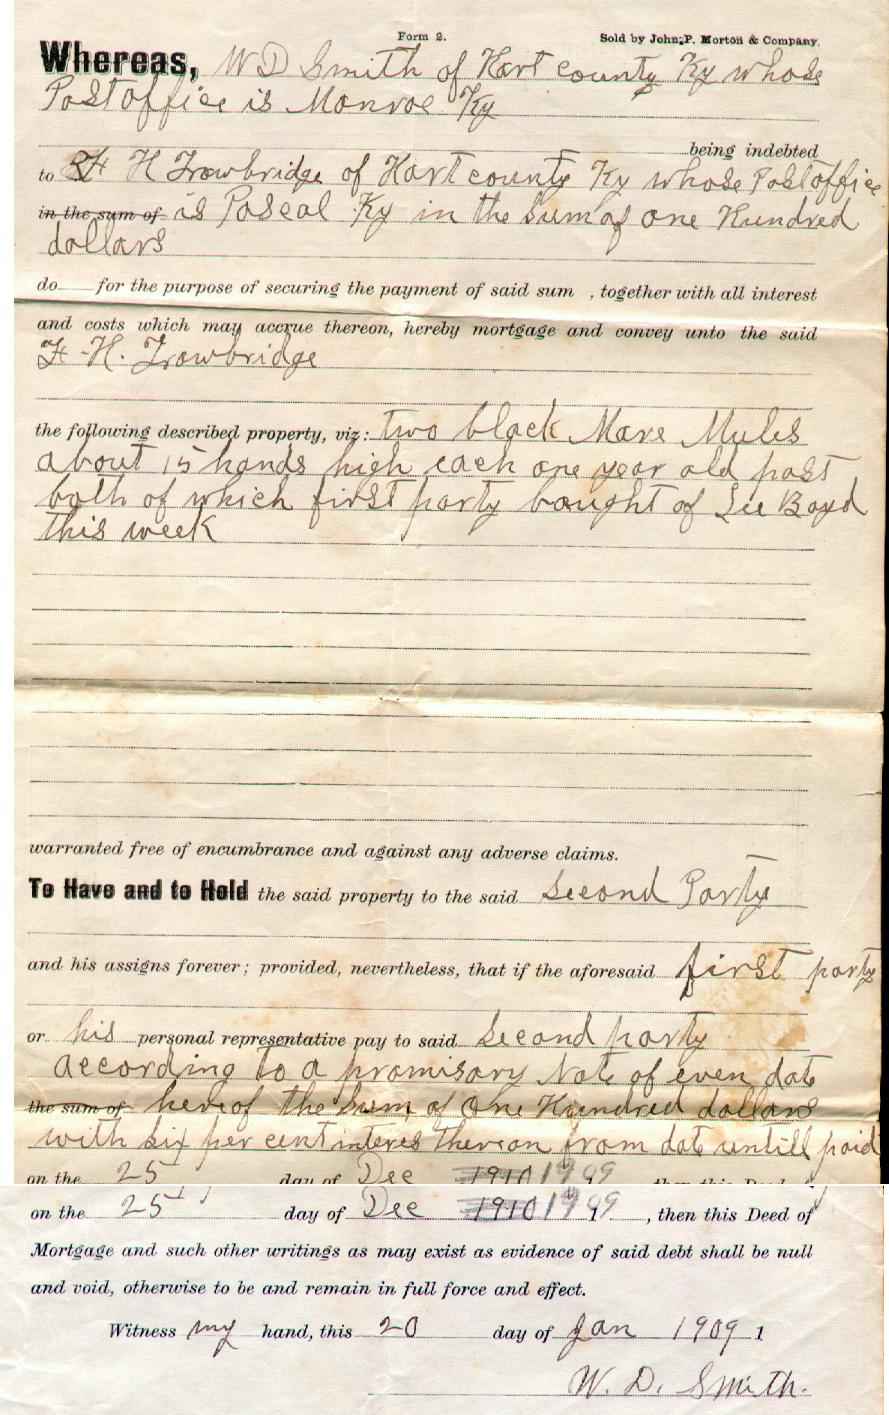 Form 2.
Sold by John P. Morton & Company.
Whereas, W D Smith of Hart county Ky whose
Postoffice is Monroe Ky
being indebted
to H Trowbridge of Hart county Ky whose Postoffice
in the sum of is Pascal Ky in the sum of one Hundred
dollars
do for the purpose of securing the payment of said sum , together with all interest
and costs which may accrue thereon, hereby mortgage and convey unto the said
F. H. Trowbridge
the following described property, viz: two black Mare Mules
about 15 hands high each one year old past
both of which first party bought of Lee Boyd
this week
warranted free of encumbrance and against any adverse claims.
To Have and to Hold the said property to the said Second Party
and his assigns forever; provided, nevertheless, that if the aforesaid first party
or his personal representative pay to said Second party
according to a promisory Note of even date
the sum of hereof the Sum of One Hundred dollars
with six per cent interes thereon from date untill paid
on the 25 day of Dec 1910 19
on the 25 day of Dec 1910 19 , then this Deed of
Mortgage and such other writings as may exist as evidence of said debt shall be null
and void, otherwise to be and remain in full force and effect.
Witness my hand, this 20 day of Jan 1909 1
W. D. Smith.